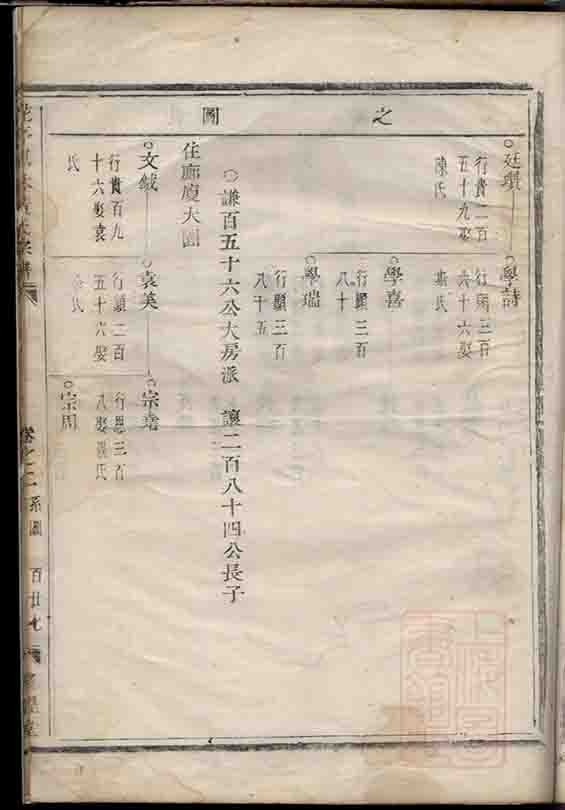 之圖
廷瓚
行貴二百
五十九娶
陳氏
學詩
行顯三百
六十六娶
斯氏
學喜
行顯三百
八十
學瑞
行顯三百
八十五
謙百五十六公大房派 讓二百八十四公長子
住廊廈大園
文絨
行貴百九
十六娶袁
氏
袁美
行顯二百
五十六娶
氏
宗堯
行恩三百
八娶 氏
宗周
卷之二 系圖 百廿七